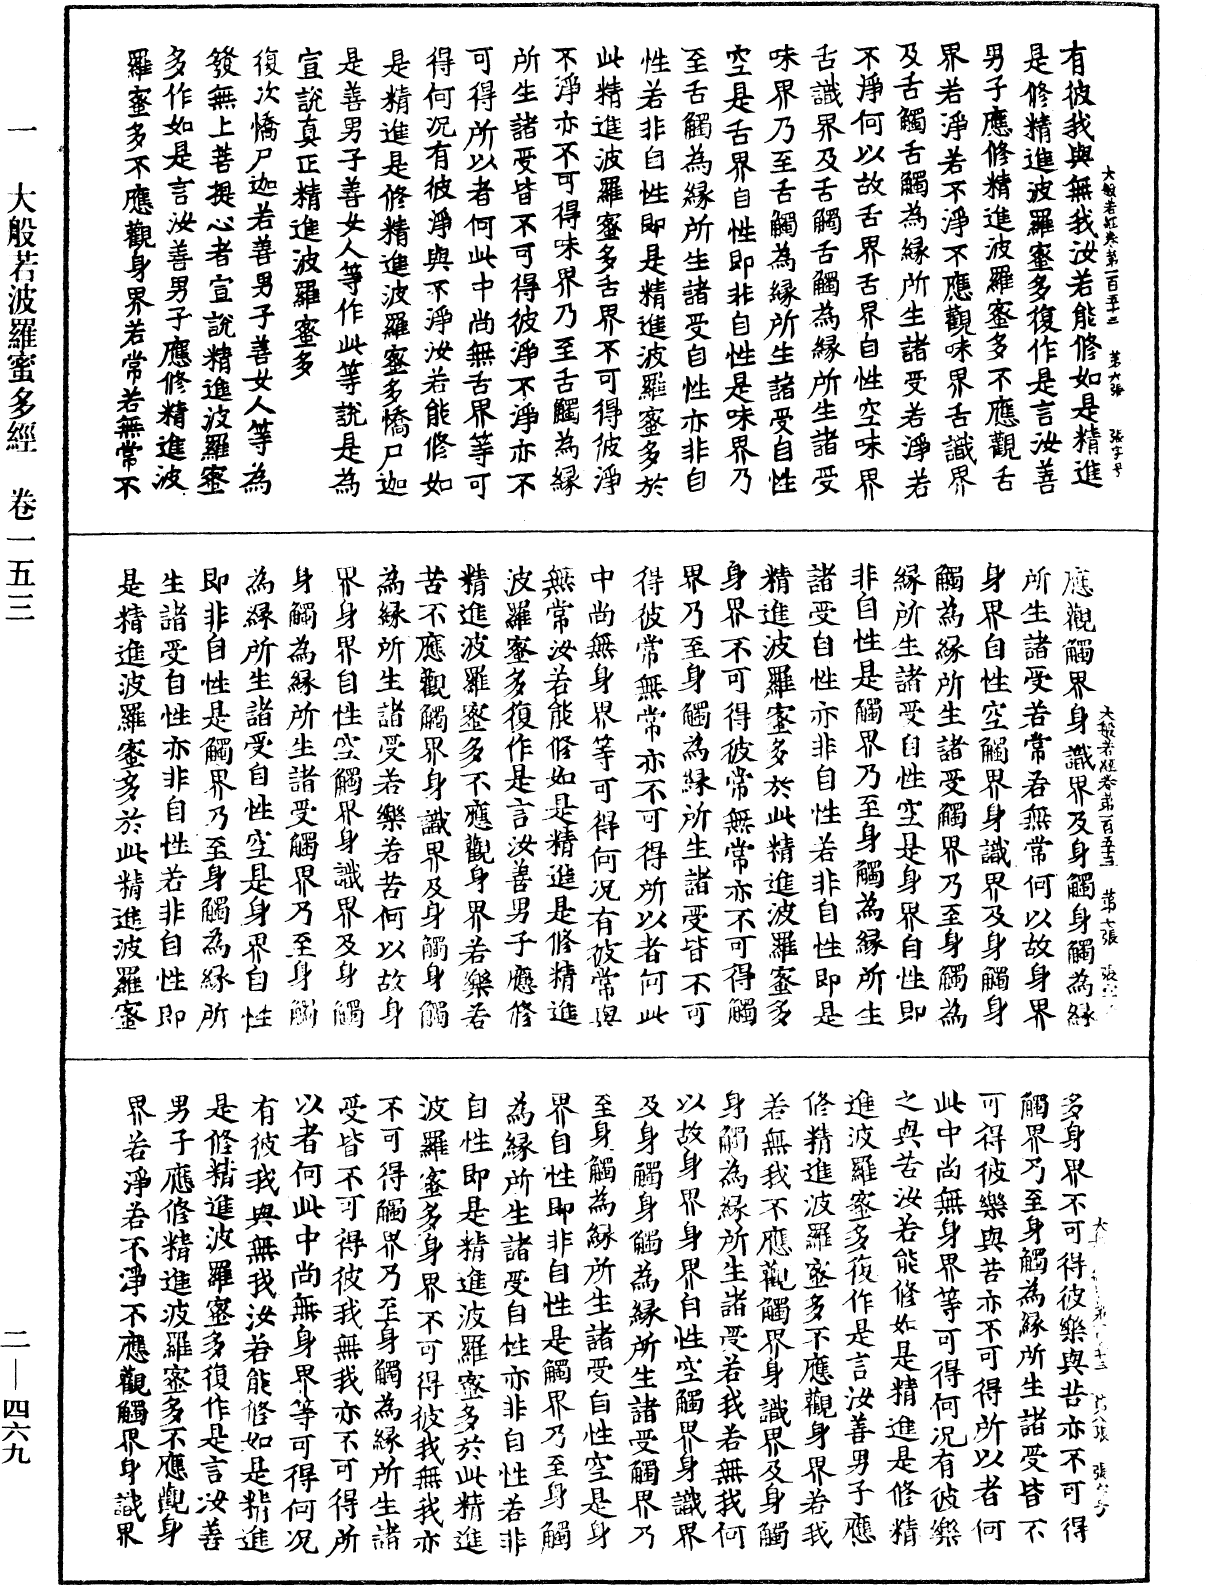 有彼我與無我汝若能修如是精進
是修精進波羅蜜多復作是言汝善
男子應修精進波羅蜜多不應觀舌
界若淨若不淨不應觀味界舌識界
及舌觸舌觸為緣所生諸受若淨若
不淨何以故舌界舌界自性空味界
舌識界及舌觸舌觸為緣所生諸受
味界乃至舌觸為緣所生諸受自性
空是舌界自性即非自性是味界乃
至舌觸為緣所生諸受自性亦非自
性若非自性即是精進波羅蜜多於
此精進波羅蜜多舌界不可得彼淨
不淨亦不可得味界乃至舌觸為緣
所生諸受皆不可得彼淨不淨亦不
可得所以者何此中尚無舌界等可
得何況有彼淨與不淨汝若能修如
是精進是修精進波羅蜜多憍尸迦
是善男子善女人等作此等說是為
宣說真正精進波羅蜜多
復次憍尸迦若善男子善女人等為
發無上菩提心者宣說精進波羅蜜
多作如是言汝善男子應修精進波
羅蜜多不應觀身界若常若無常不
大般若經卷第一百五十三 第六張 張字号
應觀觸界身識界及身觸身觸為緣
所生諸受若常若無常何以故身界
身界自性空觸界身識界及身觸身
觸為緣所生諸受觸界乃至身觸為
緣所生諸受自性空是身界自性即
非自性是觸界乃至身觸為緣所生
諸受自性亦非自性若非自性即是
精進波羅蜜多於此精進波羅蜜多
身界不可得彼常無常亦不可得觸
界乃至身觸為緣所生諸受皆不可
得彼常無常亦不可得所以者何此
中尚無身界等可得何況有彼常與
無常汝若能修如是精進是修精進
波羅蜜多復作是言汝善男子應修
精進波羅蜜多不應觀身界若樂若
苦不應觀觸界身識界及身觸身觸
為緣所生諸受若樂若苦何以故身
界身界自性空觸界身識界及身觸
身觸為緣所生諸受觸界乃至身觸
為緣所生諸受自性空是身界自性
即非自性是觸界乃至身觸為緣所
生諸受自性亦非自性若非自性即
是精進波羅蜜多於此精進波羅蜜
大般若經卷第一百五十三 第七張 張
多身界不可得彼樂與苦亦不可得
觸界乃至身觸為緣所生諸受皆不
可得彼樂與苦亦不可得所以者何
此中尚無身界等可得何況有彼樂
之與苦汝若能修如是精進是修精
進波羅蜜多復作是言汝善男子應
修精進波羅蜜多不應觀身界若我
若無我不應觀觸界身識界及身觸
身觸為緣所生諸受若我若無我何
以故身界身界自性空觸界身識界
及身觸身觸為緣所生諸受觸界乃
至身觸為緣所生諸受自性空是身
界自性即非自性是觸界乃至身觸
為緣所生諸受自性亦非自性若非
自性即是精進波羅蜜多於此精進
波羅蜜多身界不可得彼我無我亦
不可得觸界乃至身觸為緣所生諸
受皆不可得彼我無我亦不可得所
以者何此中尚無身界等可得何況
有彼我與無我汝若能修如是精進
是修精進波羅蜜多復作是言汝善
男子應修精進波羅蜜多不應觀身
界若淨若不淨不應觀觸界身識界
一 大般若波羅蜜多經 卷一五三
二—四六九